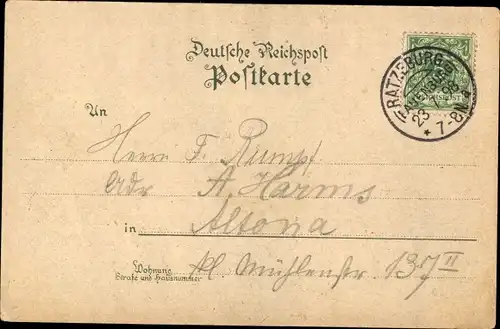 Deutsche Reichspost
Postkarte
RATZEBURG
(LAUENBURG)
23 98
* 7-8N.
REICHSPOST
An
Herrn F. Rumpf
Adr A. Harms
in Altona
Wohnung
Straße und Hausnummer
kl. Mühlenstr. 137 II